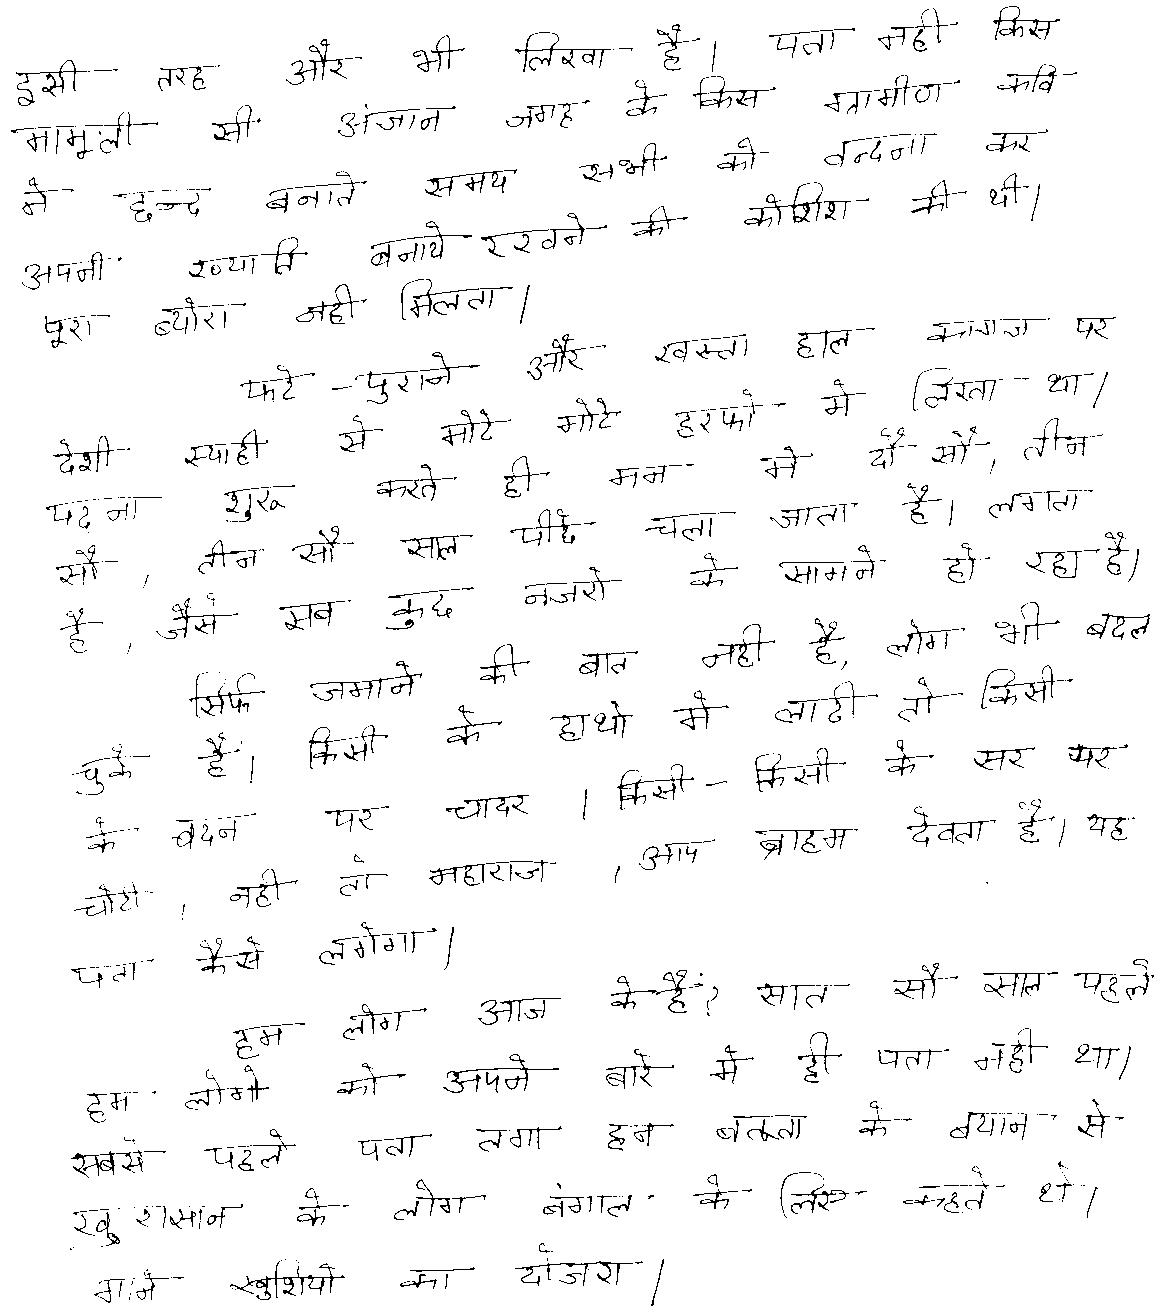 इसी तरह और भी लिखा है। पता नही किस
मामूली सी अंजान जगह के किस ग्रामीण कवि
ने छन्द बनाते समय सभी को वन्दना कर
अपनी ख्याति बनाये रखने की कोशिश की थी।
पूरा ब्योरा नही मिलता।
फटे - पुराने और खस्ता हाल कागज पर
देशी स्याही से मोटे मोटे हरफो मे लिखा था।
पढना शुरू करते ही मन मे दौ सौ, तीन
सौ, तीन सौ साल पीछे चला जाता है। लगता
है, जैसे सब कुछ नजरो के सामने हो रहा है।
सिर्फ जमाने की बात नही है, लोग भी बदल
चुके हैं। किसी के हाथो मे लाठी तो किसी
के बदन पर चादर। किसी - किसी के सर पर
चोटी, नही तो महाराज, आप ब्राहम देवता है। यह
पता कैसे लगेगा।
हम लोग आज के हैं? सात सौ साल पहले
हम लोगो को अपने बारे मे ही पता नही था।
सबसे पहले पता लगा इब्न बतूता के बयान से
खुरासान के लोग बंगाल के लिए कहते थे।
गाने खुशियो का दोजरा।